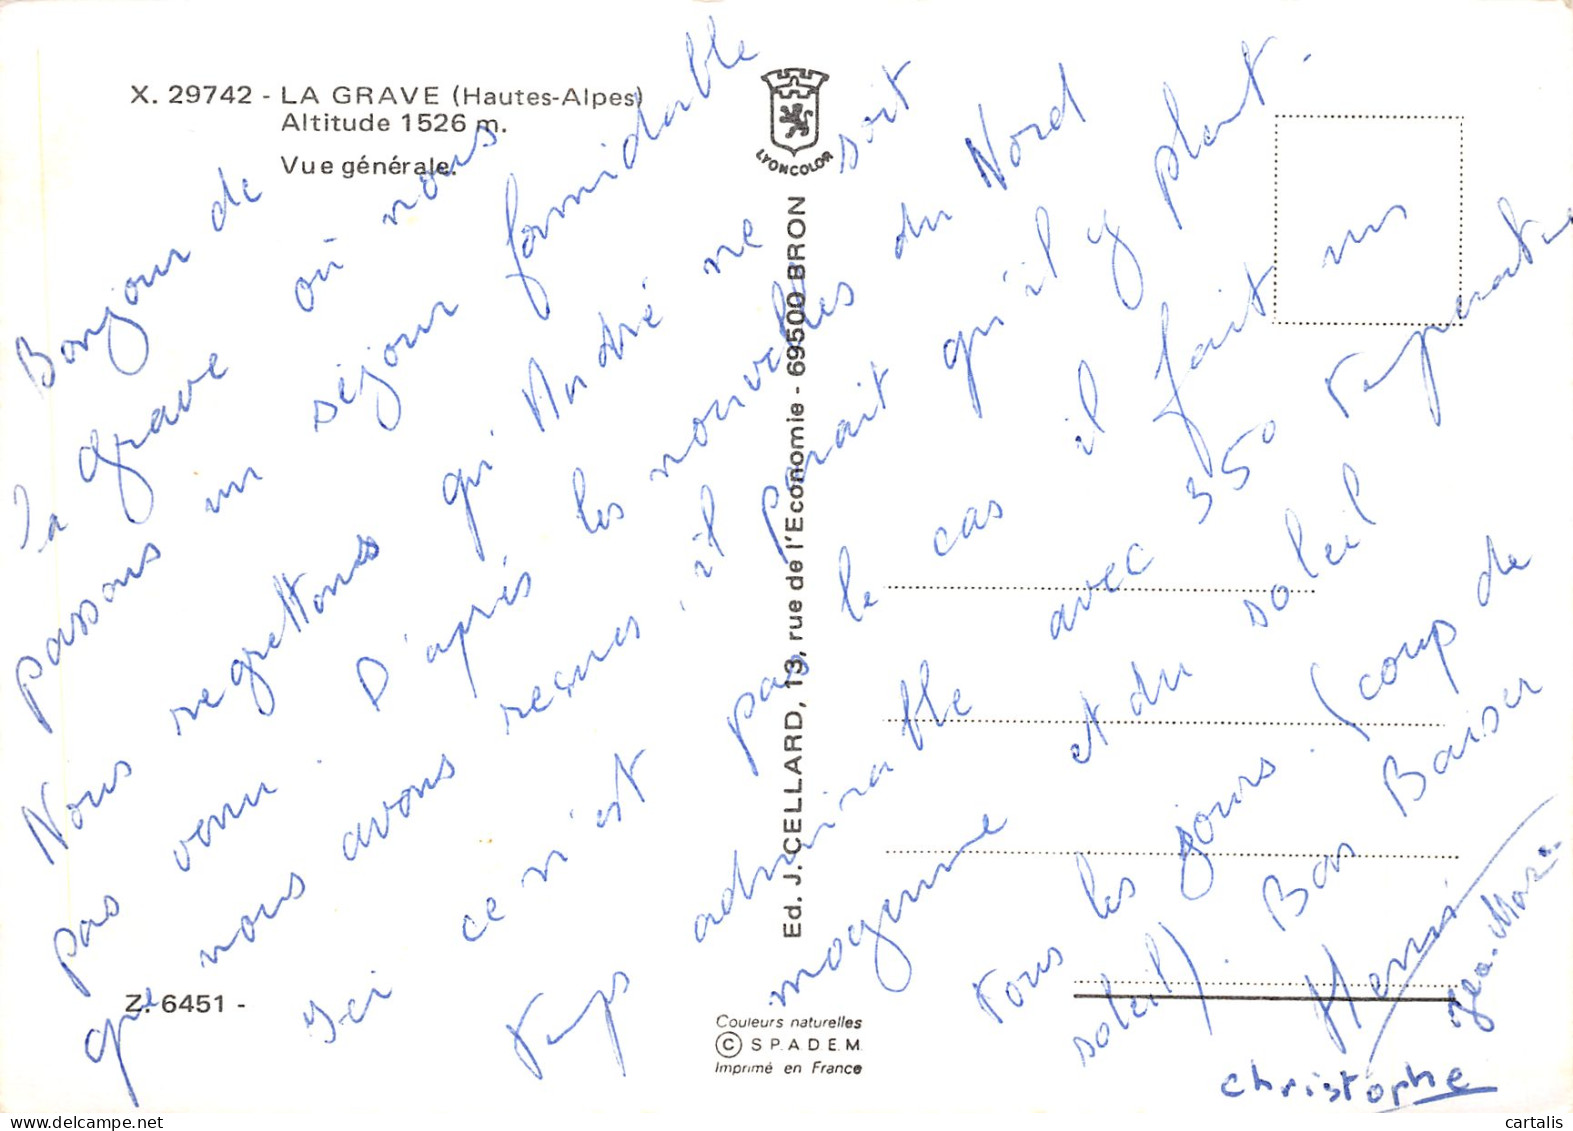 X. 29742 - LA GRAVE (Hautes-Alpes)
Altitude 1526 m.
Vue générale.
LYONCOLOR
Ed. J. CELLARD, 13, rue de l'Economie - 69500 BRON
Bonjour de
la grave où nous
passons un séjour formidable
Nous regrettons qu' André ne soit
pas venu. D'après les nouvelles du Nord
que nous avons reçues, il parait qu'il y pleut.
Ici ce n'est pas le cas il fait un
temps admirable avec 35° température
moyenne et du soleil
tous les jours. (coup de
soleil). Bons Baiser
Henri
Jean-Marie
christophe
Z. 6451 -
Couleurs naturelles
© S.P.A.D.E.M.
Imprimé en France
cartalis